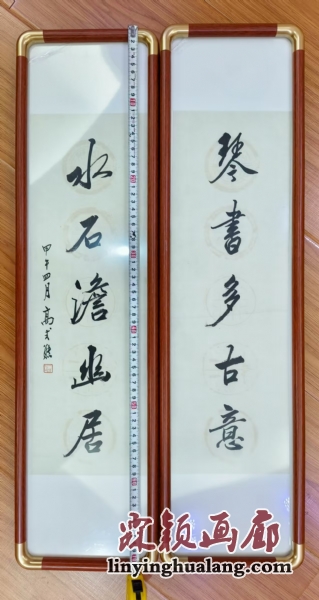 琴書多古意
水石澹幽居
甲午四月 高式熊
欧颖画廊
linyinghualang.com